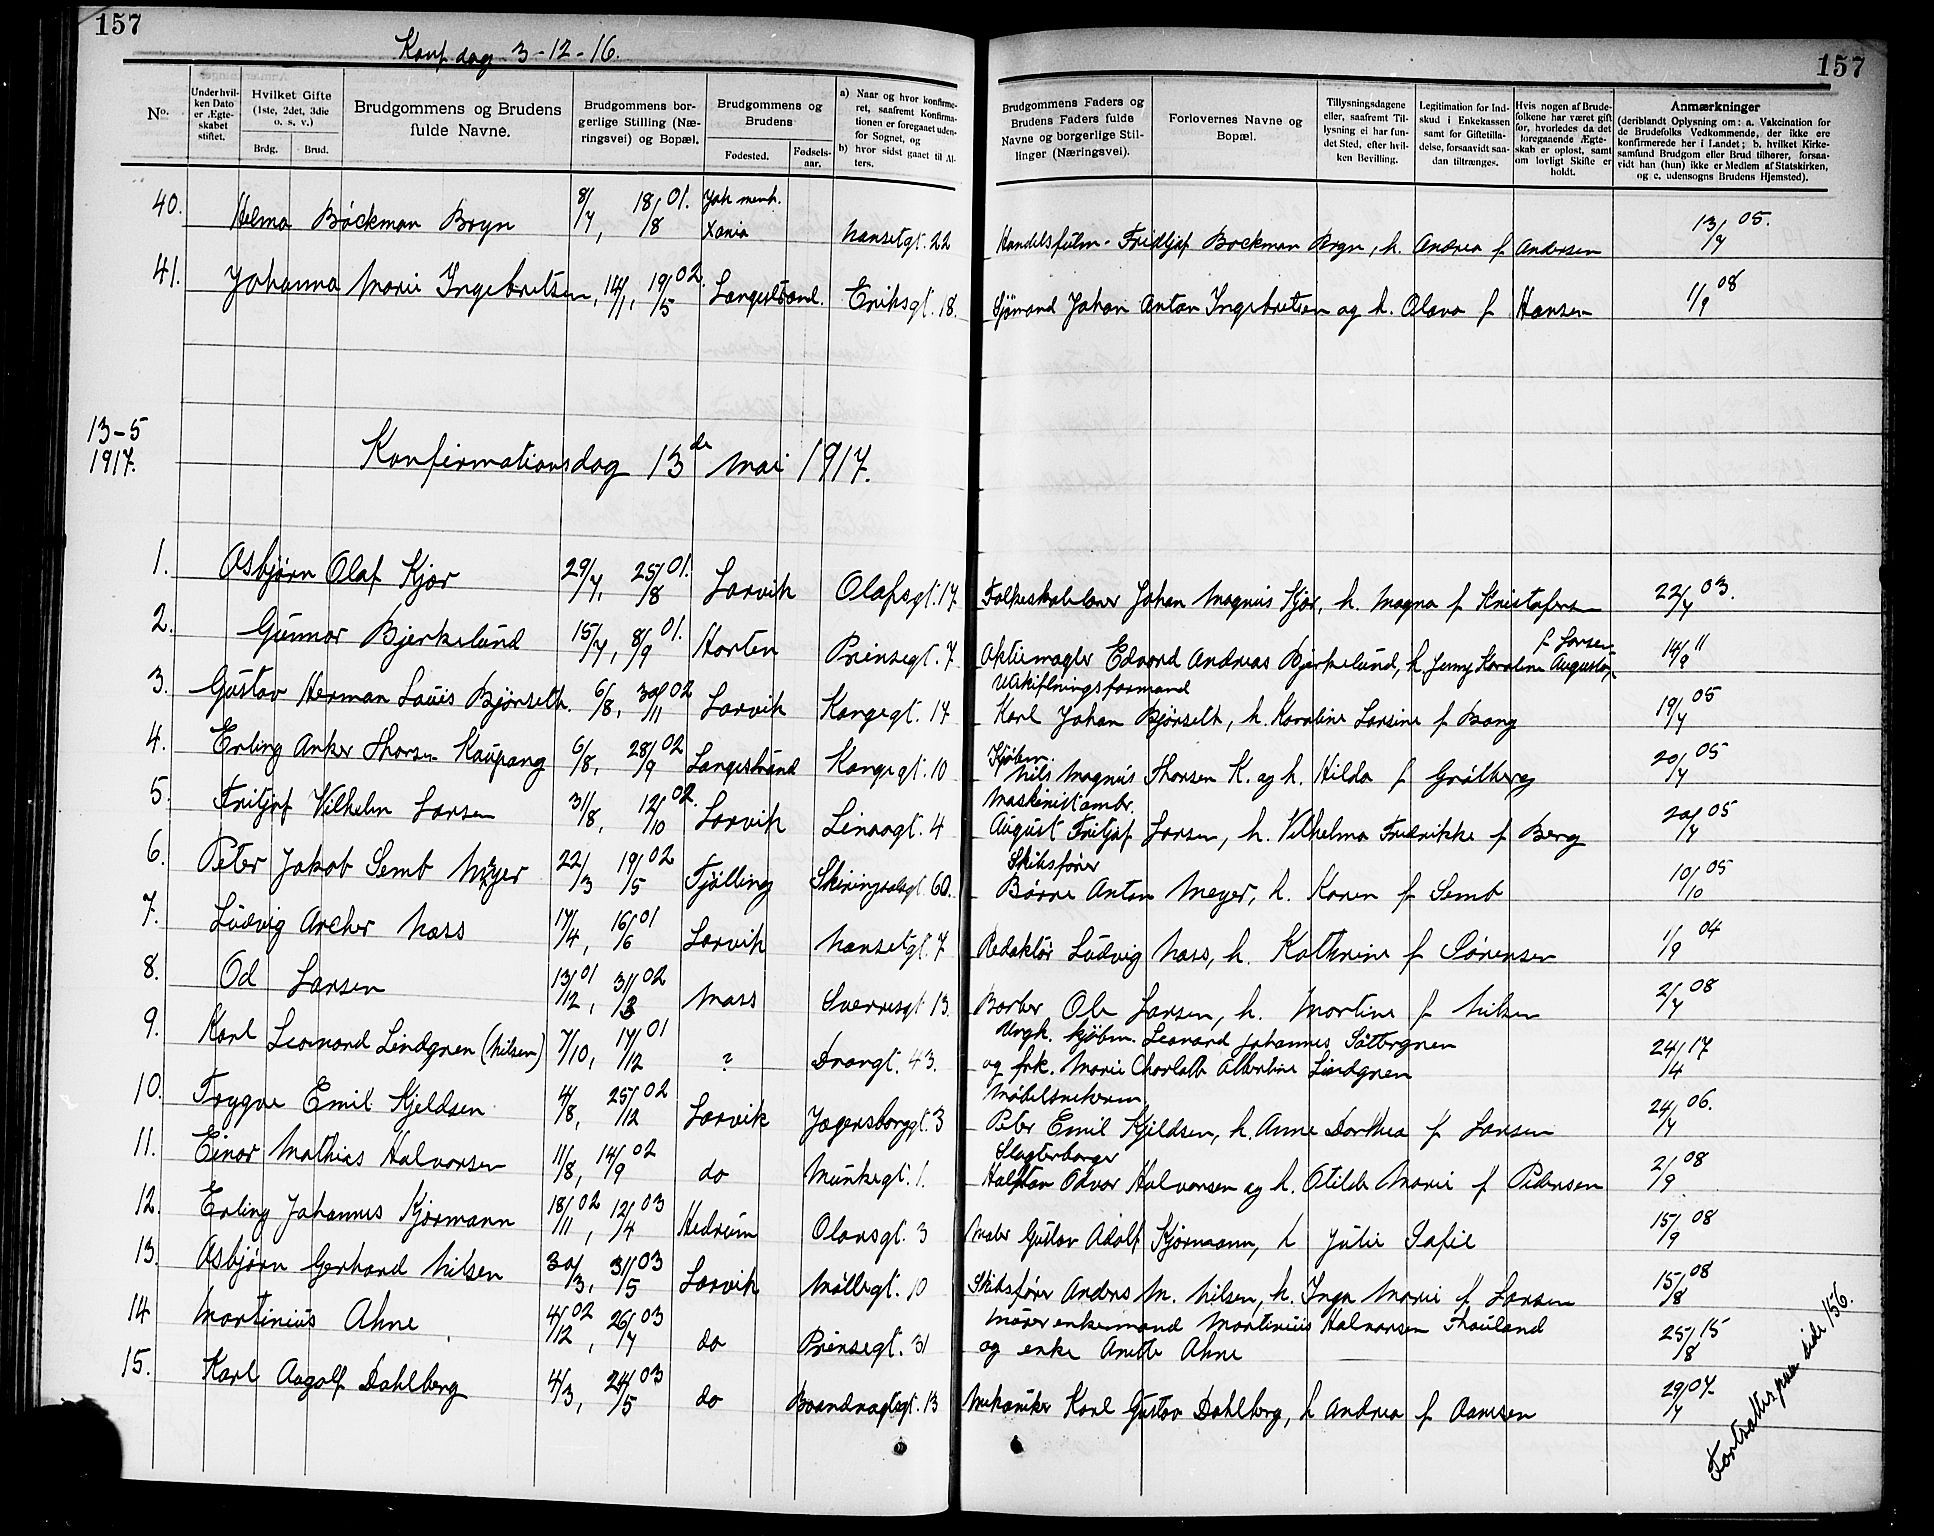 157
157
Konf. dag 3-12-16.
No.
Under hvilken Dato er Ægteskabet stiftet.
Hvilket Gifte (1ste, 2det, 3die o. s. v.)
Brdg. Brud.
Brudgommens og Brudens fulde Navne.
Brudgommens borgerlige Stilling (Næringsvei) og Bopæl.
Brudgommens og Brudens
Fødested. Fødselsaar.
a) Naar og hvor konfirmeret, saafremt Konfirmationen er foregaaet udenfor Sognet, og
b) hvor sidst gaaet til Alters.
Brudgommens Faders og Brudens Faders fulde Navne og borgerlige Stillinger (Næringsvei).
Forlovernes Navne og Bopæl.
Tillysningsdagene eller, saafremt Tillysning ei har fundet Sted, efter hvilken Bevilling.
Legitimation for Indskud i Enkekassen samt for Giftetilladelse, forsaavidt saadan tiltrænges.
Hvis nogen af Brudefolkene har været gift før, hvorledes da det foregaaende Ægteskab er opløst, samt om lovligt Skifte er holdt.
Anmærkninger
(deriblandt Oplysning om: a. Vakcination for de Brudefolks Vedkommende, der ikke ere konfirmerede her i Landet; b. hvilket Kirkesamfund Brudgom eller Brud tilhører, forsaavidt han (hun) ikke er Medlem af Statskirken, og c. udensogns Brudens Hjemsted).
40. Helma Böckman Bryn 8/7, 18/8 01. Joh. menh. Xania Nansetgt. 22 Handelsfulm. Fridtjof Bockman Bryn, h. Andrea f. Andersen 13/7 05.
41. Johanna Marie Ingebretsen, 14/1, 19/5 02. Langestrand. Eriksgt. 18. Sjömand Johan Anton Ingebretsen og h. Olava f Hansen 1/9 08
13-5
1917.
Konfirmationsdag 13de Mai 1917.
1. Asbjørn Olaf Kjær 29/7, 25/8 01. Larvik Olafsgt. 17 Folkeskolelærer Johan Magnus Kjær, h. Magna f. Kristofersen 22/7 03.
2. Gunnar Bjerkelund 15/7, 8/9 01. Horten Prinsegt. 7 Aktiemægler Edvard Andreas Bjerkelund, h Jenny Karoline Augusta, f. Larsen 14/9 11
3. Gustav Herman Louis Bjönselt. 6/8, 30/11 02 Larvik Kongegt. 17 Utskiftningsformand
Karl Johan Bjönselt, h. Karoline Larsine f Bang 19/7 05
4. Erling Anker Thorsen Kaupang 6/8, 28/9 02 Langestrand Kongegt. 10 Kjöbm.
Nils Magnus Thorsen K. og h. Hilda f Gråtberg 20/7 05
5. Fritjof Vilhelm Larsen 31/8, 12/10 02. Larvik Linaagt. 4 Maskinistambr.
August Fritjof Larsen, h. Vilhelma Fredrikke f Berg 20/7 05
6. Peter Jakob Semb Meyer 22/3 19/5 02 Fjölling Skiringsalsgt 60. Skibsfører
Börre Anton Meyer, h. Karen f Semb 10/10 05
7. Ludvig Archer Næss 17/4, 16/6 01 Larvik Nansetgt. 7 Redaktör Ludvig Næss, h. Kathrine f Sörensen 1/9 04
8. Od Larsen 13/12 01, 31/3 02 Moss Sverresgt 13. Barber Ole Larsen, h. Martine f Nilsen 2/7 08
9. Karl Leonard Lindgren (Nilsen) 7/10, 17/12 01 ? Dronngt. 43. Ungk. kjöbm. Leonard Johannes Sätbrgnen
og frk. Marie Charlotte Albertine Lindgren 24/4 17
10. Trygve Emil Kjeldsen 4/8, 25/12 02 Larvik Jegersborggt. 3 Möbelsnekerm.
Peter Emil Kjeldsen, h. Anne Dorthea f Larsen 24/7 06.
11. Einar Mathias Halvorsen 11/8, 14/9 02 do Munkegt. 1. Slagterborger
Halfdan Odvar Halvorsen og h. Otilde Marie f Pedersen 2/9 08
12. Erling Johannes Kjørmann 18/11 02, 12/4 03 Hedrum Olavsgt. 3 Maler Gustav Adolf Kjørmann, h Julie Sofie 15/9 08
13. Asbjørn Gerhard Nilsen 30/3, 31/5 03 Larvik Möllegt. 10 Skibsfører Anders M. Nilsen, h. Inga Marie f Larsen 15/8 08
14 Martinius Ahne 4/12 02, 26/7 03 do Prinsegt. 31 Murer enkemand Martinius Halvorsen Thauland
og enke Anette Ahne 25/8 15
15. Karl Aagolf Dahlberg 4/3, 24/5 03 do Brandvagtsgt. 13 Mekaniker Karl Gustav Dahlberg, h Andrea f Aamsen 29/7 07
Fortsættes paa side 156.